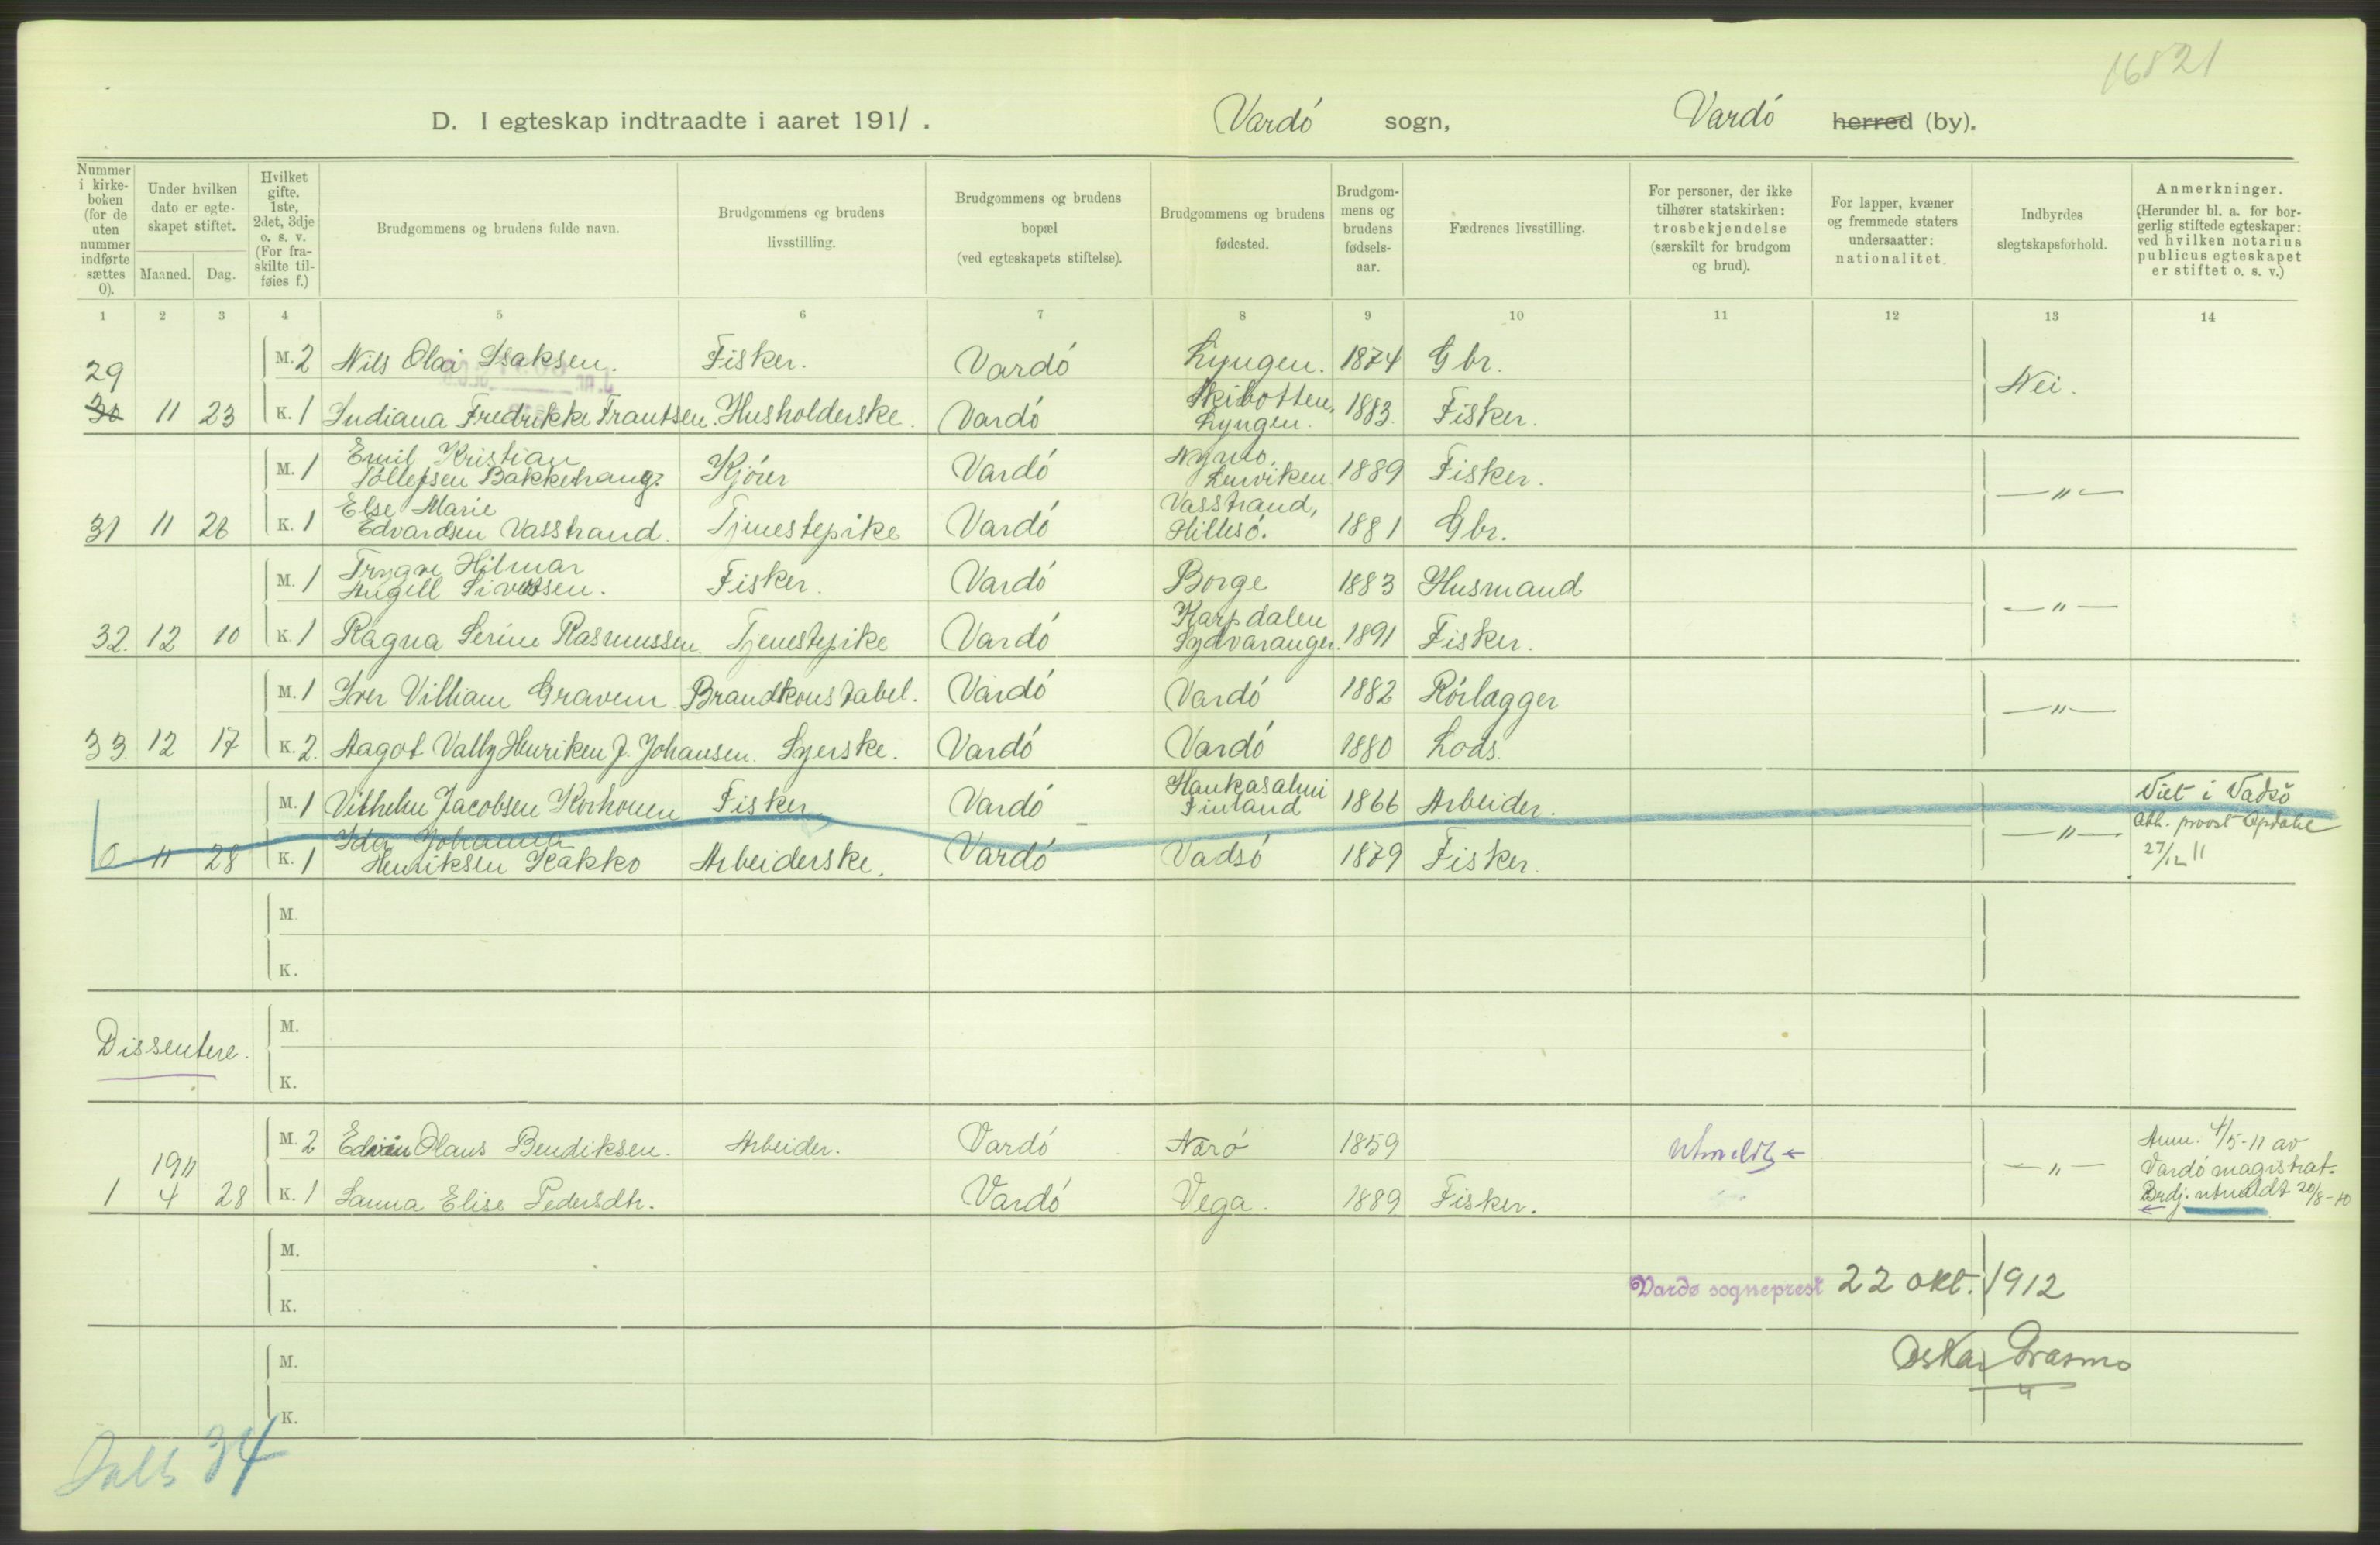 16821
D. I egteskap indtraadte i aaret 1911. Vardó sogn, Vardó herred (by).
Nummer i kirkeboken (for de uten nummer indførte sættes 0).
Under hvilken dato er egteskapet stiftet.
Maaned. Dag.
Hvilket gifte. 1ste, 2det, 3dje o. s. v. (For fraskilte tilføies f.)
Brudgommens og brudens fulde navn.
Brudgommens og brudens livsstilling.
Brudgommens og brudens bopæl (ved egteskapets stiftelse).
Brudgommens og brudens fødested.
Brudgommens og brudens fødselsaar.
Fædrenes livsstilling.
For personer, der ikke tilhører statskirken: trosbekjendelse (særskilt for brudgom og brud).
For lapper, kvæner og fremmede staters undersaatter: nationalitet.
Indbyrdes slegtskapsforhold.
Anmerkninger. (Herunder bl. a. for borgerlig stiftede egteskaper: ved hvilken notarius publicus egteskapet er stiftet o. s. v.)
1 2 3 4 5 6 7 8 9 10 11 12 13 14
29 M. 2 Nils Olai Isaksen. Fisker. Vardó Lyngen. 1874 Gbr. Nei.
30 11 23 K. 1 Indiana Fredrikke Frantsen. Husholderske. Vardó Skibotten, Lyngen. 1883. Fisker.
M. 1 Emil Kristian Tóllefsen Bakkehaug. Kjórer Vardó Nymo, Lenviken 1889 Fisker. — " —
31 11 26 K. 1 Else Marie Edvardsen Vasstrand. Tjenestepike Vardó Vasstrand, Hillesó. 1881 Gbr.
M. 1 Trygve Hilmar Angell Sivertsen. Fisker. Vardó Borge 1883 Husmand — " —
32. 12 10 K. 1 Ragna Serine Rasmussen Tjenestepike Vardó Karpdalen Sydvaranger. 1891 Fisker.
M. 1 Iver Villiam Gravem Brandkonstabel. Vardó Vardó 1882 Rórlægger — " —
33. 12 17 K. 2. Aagot Vally Henriken J. Johansen. Syerske. Vardó Vardó 1880 Lods.
M. 1 Vilhelm Jacobsen Korhonen Fisker Vardó Hankasalmi Finland 1866 Arbeider. — " — Viet i Vadsó
0 11 28 K. 1 Ida Johanna Henriksen Kakko Arbeiderske. Vardó Vadsó 1879 Fisker. provst Opdahl 27/12 11
M.
K.
Dissentere. M.
K.
M. 2 Edvin Olaus Bendiksen. Arbeider. Vardó Næró 1859 utmeldt ← — " — Anm. 4/5-11 av
1911
1 4 28 K. 1 Sanna Elise Pedersdtr. Vardó Vega. 1889 Fisker. Vardó magistrat.
Brdj. utmeldt 20/8-10
M.
K.
Vardø sogneprest 22 okt. 1912
M.
Oskar
K.
34